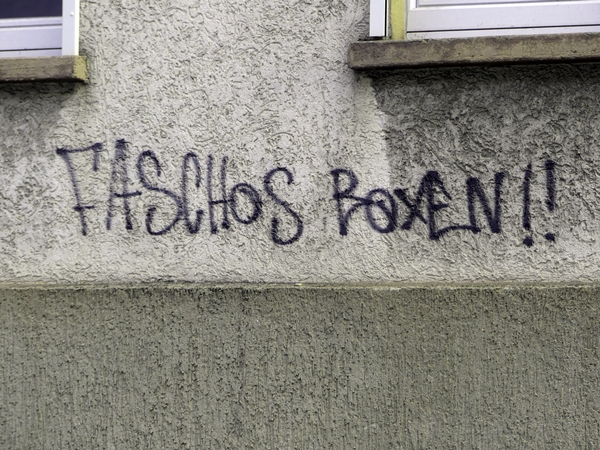 FASCHOS BOXEN!!